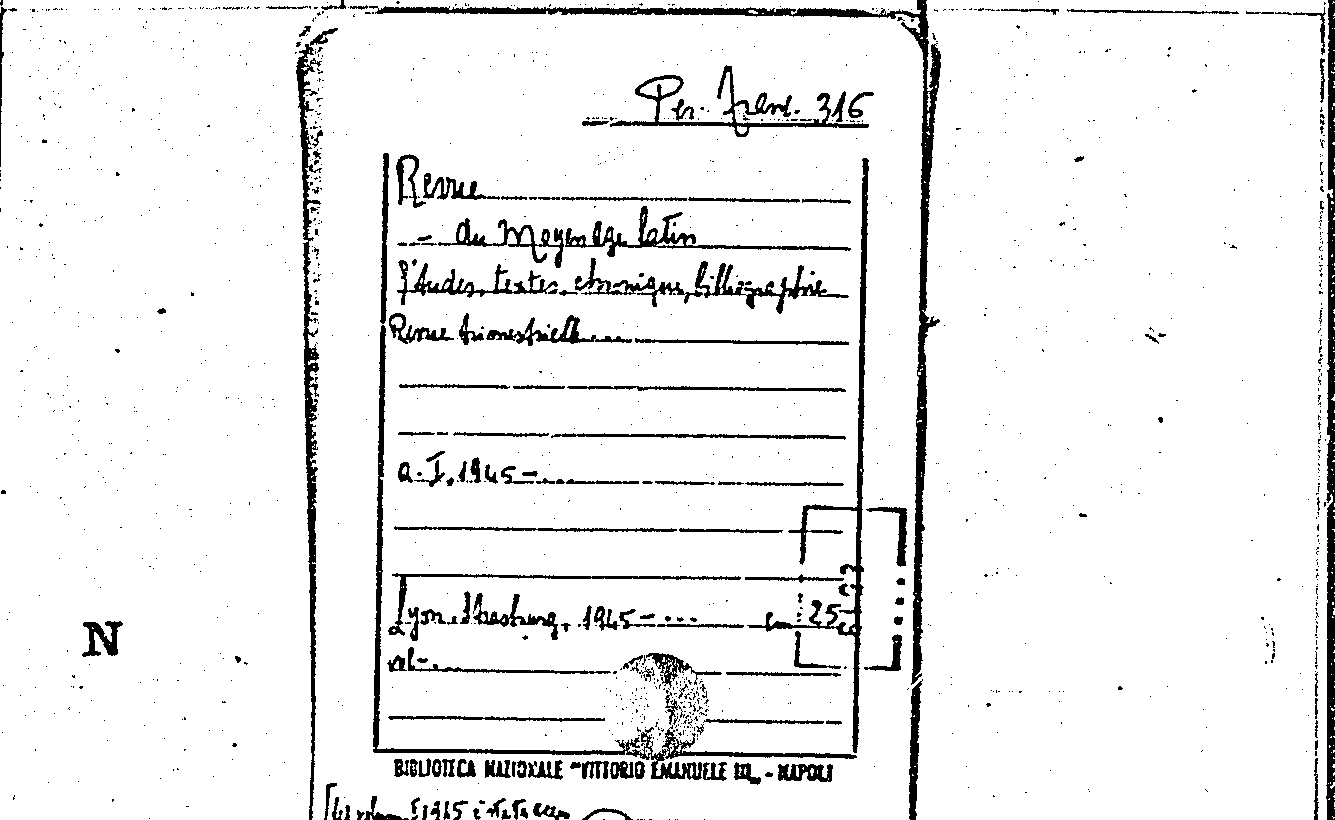 Per. Franc. 316
Revue
- du Moyen age latin
Études, textes, chronique, bibliographie
Revue trimestrielle....
a. I, 1945 - ....
N
Lyon, Strasbourg, 1945 - ... cm 25
vol - ....
BIBLIOTECA NAZIONALE "VITTORIO EMANUELE III„ - NAPOLI
1945